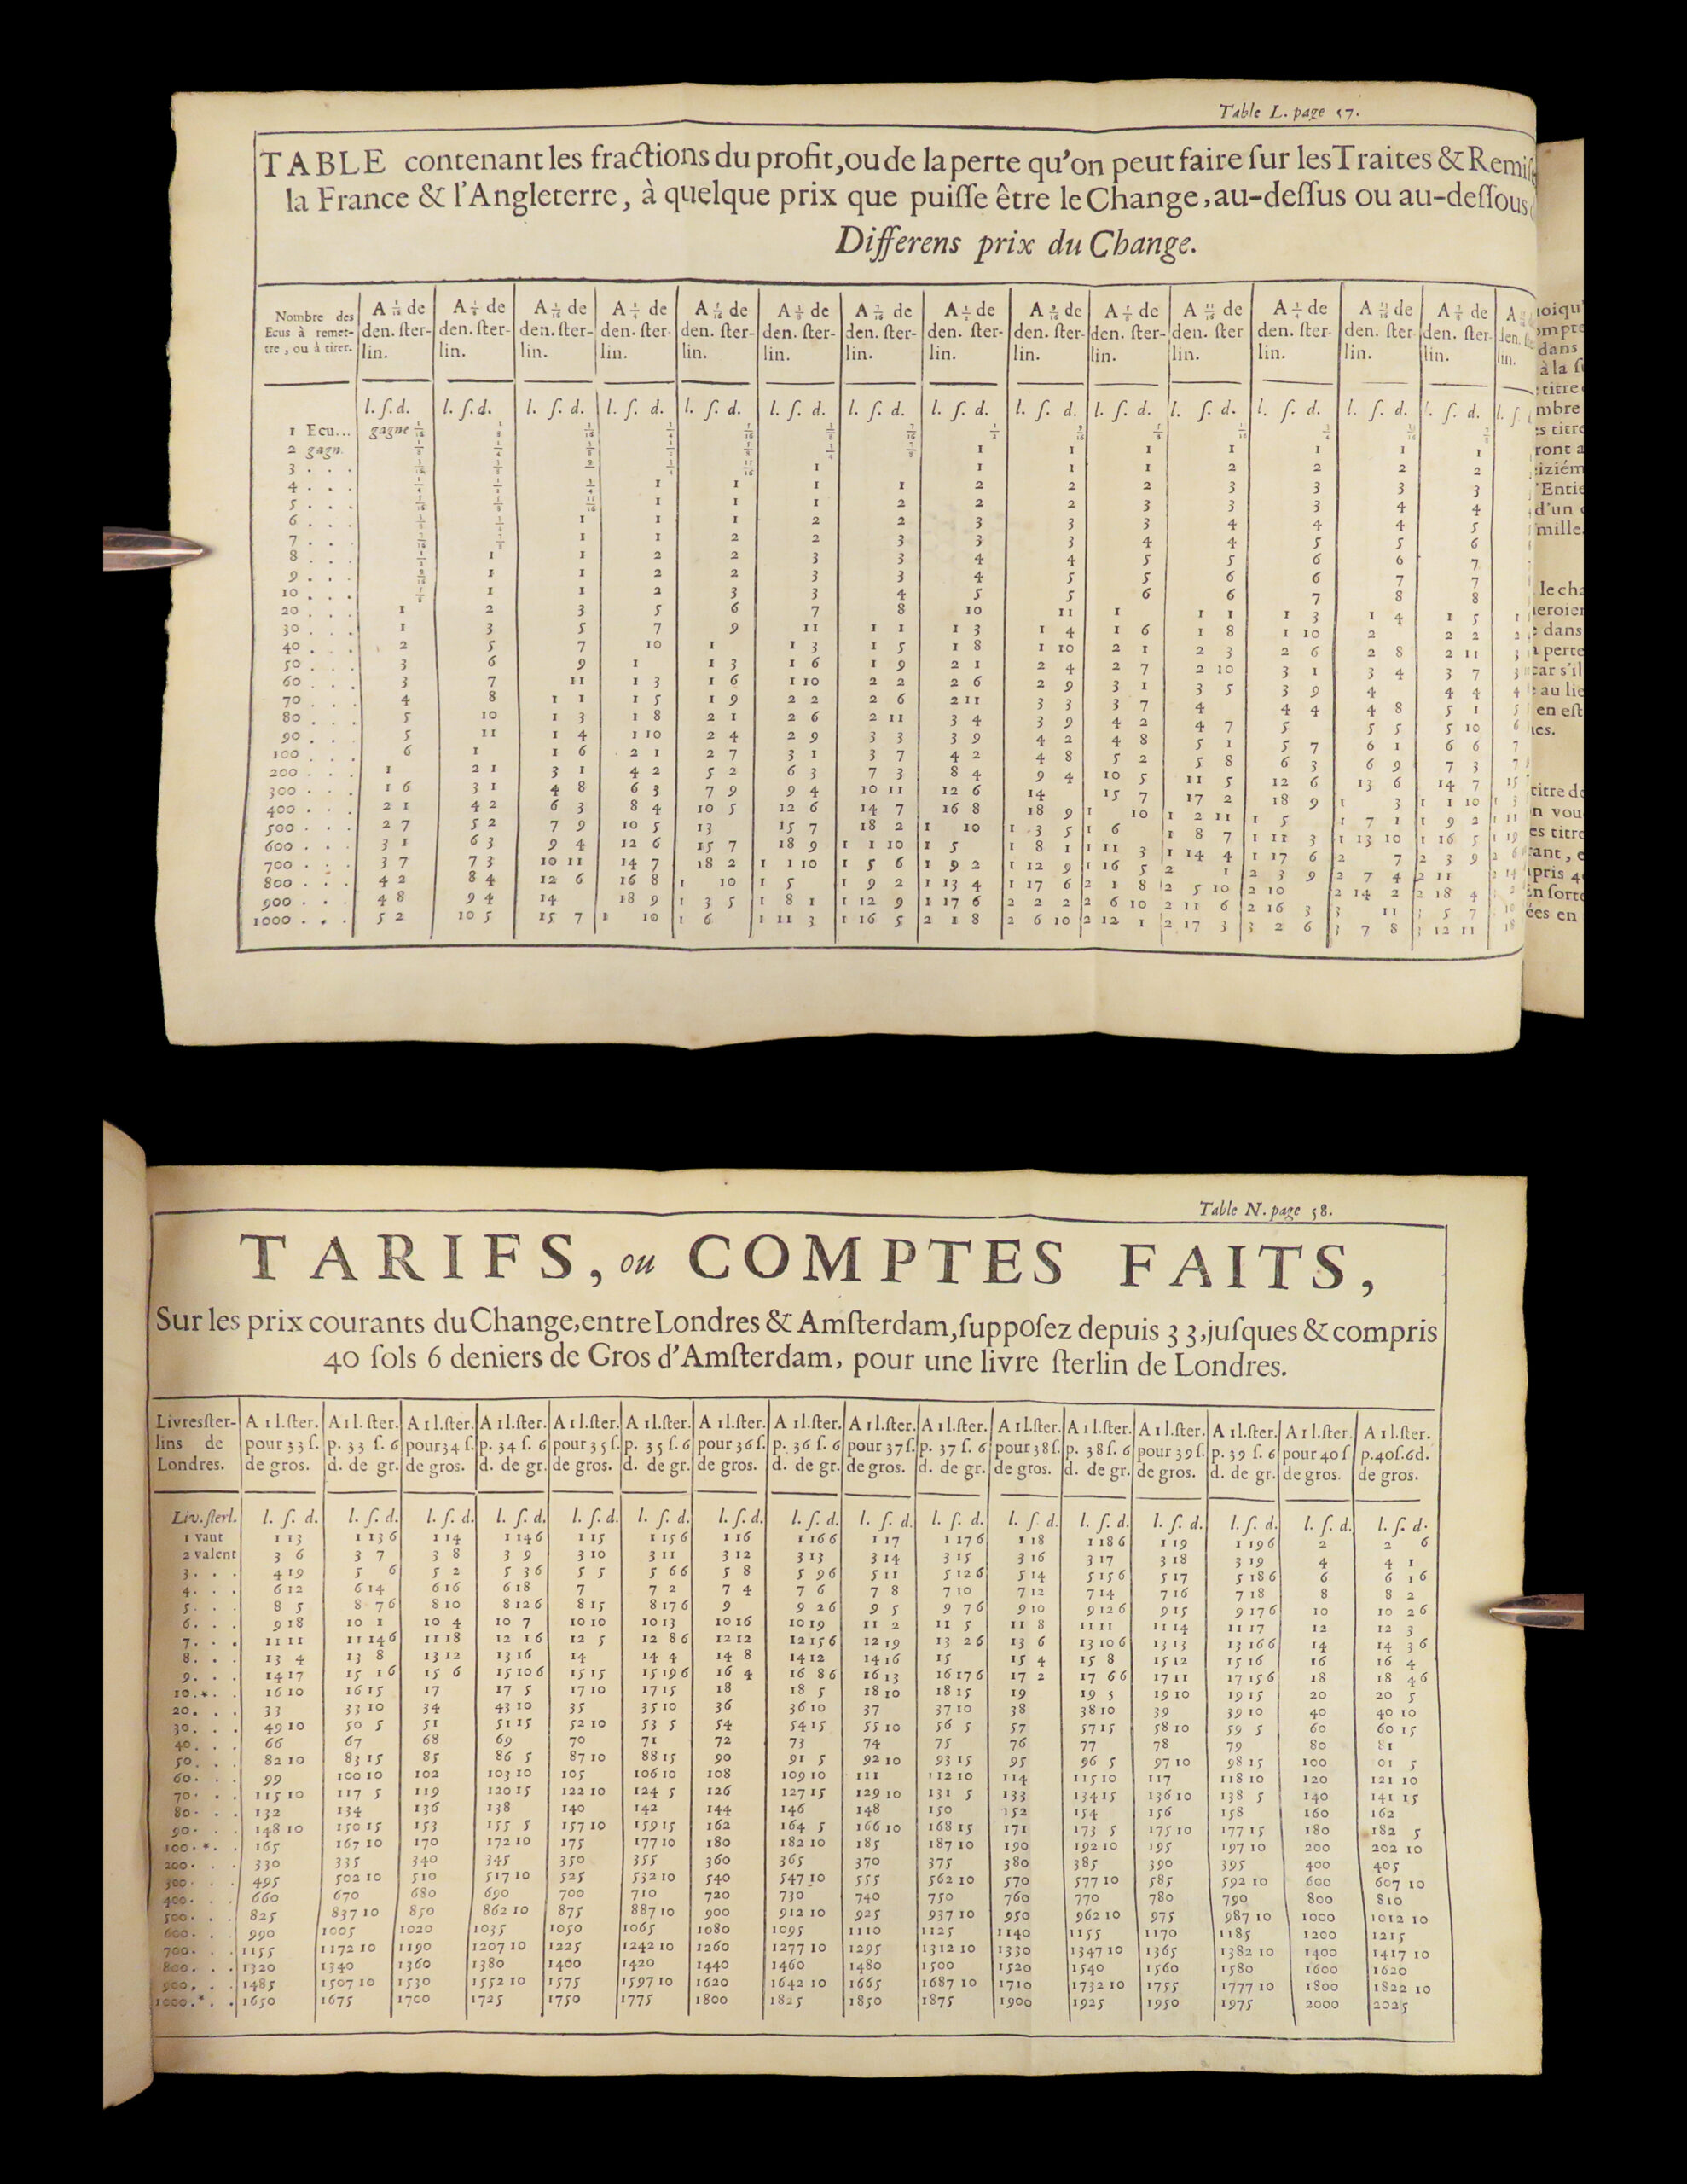 Table L. page 57.
TABLE contenant les fractions du profit, ou de la perte qu'on peut faire ſur les Traites & Remiſ
la France & l'Angleterre, à quelque prix que puiſſe être le Change, au-deſſus ou au-deſſous
Differens prix du Change.
Nombre des Ecus à remettre, ou à tirer. A 1/16 de den. ſterlin. A 1/8 de den. ſterlin. A 3/16 de den. ſterlin. A 1/4 de den. ſterlin. A 5/16 de den. ſterlin. A 3/8 de den. ſterlin. A 7/16 de den. ſterlin. A 1/2 de den. ſterlin. A 9/16 de den. ſterlin. A 5/8 de den. ſterlin. A 11/16 de den. ſterlin. A 3/4 de den. ſterlin. A 13/16 de den. ſterlin. A 7/8 de den. ſterlin. A
l. ſ. d. l. ſ. d. l. ſ. d. l. ſ. d. l. ſ. d. l. ſ. d. l. ſ. d. l. ſ. d. l. ſ. d. l. ſ. d. l. ſ. d. l. ſ. d. l. ſ. d. l. ſ. d. l. ſ.
1 Ecu... gagne 1/16 1/8
2 gagn. 1 1 1 1 1 1 1
3 . . . 1 1 1 1 2 2 2 2
4 . . . 1 1 1 1 2 2 2 3 3 3 3
5 . . . 1 1 1 2 2 2 3 3 3 4 4
6 . . . 1 1 1 2 2 3 3 3 4 4 4 5
7 . . . 1 1 2 2 3 3 3 4 4 5 5 6
8 . . . 1 1 2 2 3 3 4 4 5 5 6 6 7
9 . . . 1 1 2 2 3 3 4 5 5 6 6 7 7
10 . . . 1 1 2 3 3 4 5 5 6 6 7 8 8
20 . . . 1 2 3 5 6 7 8 10 11 1 1 1 1 3 1 4 1 5
30 . . . 1 3 5 7 9 11 1 1 1 3 1 4 1 6 1 8 1 10 2 2 2
40 . . . 2 5 7 10 1 1 3 1 5 1 8 1 10 2 1 2 3 2 6 2 8 2 11
50 . . . 3 6 9 1 1 3 1 6 1 9 2 1 2 4 2 7 2 10 3 1 3 4 3 7
60 . . . 3 7 11 1 3 1 6 1 10 2 2 2 6 2 9 3 1 3 5 3 9 4 4 4
70 . . . 4 8 1 1 1 5 1 9 2 2 2 6 2 11 3 3 3 7 4 4 4 4 8 5 1
80 . . . 5 10 1 3 1 8 2 1 2 6 2 11 3 4 3 9 4 2 4 7 5 5 5 5 10
90 . . . 5 11 1 4 1 10 2 4 2 9 3 3 3 9 4 2 4 8 5 1 5 7 6 1 6 6
100 . . . 6 1 1 6 2 1 2 7 3 1 3 7 4 2 4 8 5 2 5 8 6 3 6 9 7 3
200 . . . 1 2 1 3 1 4 2 5 2 6 3 7 3 8 4 9 4 10 5 11 5 12 6 13 6 14 7
300 . . . 1 6 3 1 4 8 6 3 7 9 9 4 10 11 12 6 14 15 7 17 2 18 9 1 3 1 1 10
400 . . . 2 1 4 2 6 3 8 4 10 5 12 6 14 7 16 8 18 9 1 10 1 2 11 1 5 1 7 1 1 9 2
500 . . . 2 7 5 2 7 9 10 5 13 15 7 18 2 1 10 1 3 5 1 6 1 8 7 1 11 3 1 13 10 1 16 5
600 . . . 3 1 6 3 9 4 12 6 15 7 18 9 1 1 10 1 5 1 8 1 1 11 3 1 14 4 1 17 6 2 7 2 3 9
700 . . . 3 7 7 3 10 11 14 7 18 2 1 1 10 1 5 6 1 9 2 1 12 9 1 16 5 2 1 2 3 9 2 7 4 2 11
800 . . . 4 2 8 4 12 6 16 8 1 10 1 5 1 9 2 1 13 4 1 17 6 2 1 8 2 5 10 2 10 2 14 2 2 18 4
900 . . . 4 8 9 4 14 18 9 1 3 5 1 8 1 1 12 9 1 17 6 2 2 2 2 6 10 2 11 6 2 16 3 3 11 3 5 7
1000 . . . 5 2 10 5 15 7 1 10 1 6 1 11 3 1 16 5 2 1 8 2 6 10 2 12 1 2 17 3 3 2 6 3 7 8 3 12 11
Table N. page 58.
TARIFS, ou COMPTES FAITS,
Sur les prix courants du Change, entre Londres & Amſterdam, ſuppoſez depuis 33, juſques & compris
40 ſols 6 deniers de Gros d'Amſterdam, pour une livre ſterlin de Londres.
Livres ſterlins de Londres. A 1 l. ſter. pour 33 ſ. de gros. A 1 l. ſter. p. 33 ſ. 6 d. de gr. A 1 l. ſter. pour 34 ſ. de gros. A 1 l. ſter. p. 34 ſ. 6 d. de gr. A 1 l. ſter. pour 35 ſ. de gros. A 1 l. ſter. p. 35 ſ. 6 d. de gr. A 1 l. ſter. pour 36 ſ. de gros. A 1 l. ſter. p. 36 ſ. 6 d. de gr. A 1 l. ſter. pour 37 ſ. de gros. A 1 l. ſter. p. 37 ſ. 6 d. de gr. A 1 l. ſter. pour 38 ſ. de gros. A 1 l. ſter. p. 38 ſ. 6 d. de gr. A 1 l. ſter. pour 39 ſ. de gros. A 1 l. ſter. p. 39 ſ. 6 d. de gr. A 1 l. ſter. pour 40 ſ de gros. A 1 l. ſter. p. 40 ſ. 6 d. de gros.
Liv. ſterl. l. ſ. d. l. ſ. d. l. ſ. d. l. ſ. d. l. ſ. d. l. ſ. d. l. ſ. d. l. ſ. d. l. ſ. d. l. ſ. d. l. ſ. d. l. ſ. d. l. ſ. d. l. ſ. d. l. ſ. d. l. ſ. d.
1 vaut 1 13 1 13 6 1 14 1 14 6 1 15 1 15 6 1 16 1 16 6 1 17 1 17 6 1 18 1 18 6 1 19 1 19 6 2 2 6
2 valent 3 6 3 7 3 8 3 9 3 10 3 11 3 12 3 13 3 14 3 15 3 16 3 17 3 18 3 19 4 4 1
3. . . 4 19 5 6 5 2 5 3 6 5 5 5 6 6 5 8 5 9 6 5 11 5 12 6 5 14 5 15 6 5 17 5 18 6 6 6 1 6
4. . . 6 12 6 14 6 16 6 18 7 7 2 7 4 7 6 7 8 7 10 7 12 7 14 7 16 7 18 8 8 2
5. . . 8 5 8 7 6 8 10 8 12 6 8 15 8 17 6 9 9 2 6 9 5 9 7 6 9 10 9 12 6 9 15 9 17 6 10 10 2 6
6. . . 9 18 10 1 10 4 10 7 10 10 10 13 10 16 10 19 11 2 11 5 11 8 11 11 11 14 11 17 12 12 3
7. . . 11 11 11 14 6 11 18 12 1 6 12 5 12 8 6 12 12 12 15 6 12 19 13 2 6 13 6 13 10 6 13 13 13 16 6 14 14 3 6
8. . . 13 4 13 8 13 12 13 16 14 14 4 14 8 14 12 14 16 15 15 4 15 8 15 12 15 16 16 16 4
9. . . 14 17 15 1 6 15 6 15 10 6 15 15 15 19 6 16 4 16 8 6 16 13 16 17 6 17 2 17 6 6 17 11 17 15 6 18 18 4 6
10.*. . 16 10 16 15 17 17 5 17 10 17 15 18 18 5 18 10 18 15 19 19 5 19 10 19 15 20 20 5
20. . . 33 33 10 34 43 10 35 35 10 36 36 10 37 37 10 38 38 10 39 39 10 40 40 10
30. . . 49 10 50 5 51 51 15 52 10 53 5 54 54 15 55 10 56 5 57 57 15 58 10 59 5 60 60 15
40. . . 66 67 68 69 70 71 72 73 74 75 76 77 78 79 80 81
50. . . 82 10 83 15 85 86 5 87 10 88 15 90 91 5 92 10 93 15 95 96 5 97 10 98 15 100 01 5
60. . . 99 100 10 102 103 10 105 106 10 108 109 10 111 112 10 114 115 10 117 118 10 120 121 10
70. . . 115 10 117 5 119 120 15 122 10 124 5 126 127 15 129 10 131 5 133 134 15 136 10 138 5 140 141 15
80. . . 132 134 136 138 140 142 144 146 148 150 152 154 156 158 160 162
90. . . 148 10 150 15 153 155 5 157 10 159 15 162 164 5 166 10 168 15 171 173 5 175 10 177 15 180 182 5
100.*. . 165 167 10 170 172 10 175 177 10 180 182 10 185 187 10 190 192 10 195 197 10 200 202 10
200. . . 330 335 340 345 350 355 360 365 370 375 380 385 390 395 400 405
300. . . 495 502 10 510 517 10 525 532 10 540 547 10 555 562 10 570 577 10 585 592 10 600 607 10
400. . . 660 670 680 690 700 710 720 730 740 750 760 770 780 790 800 810
500. . . 825 837 10 850 862 10 875 887 10 900 912 10 925 937 10 950 962 10 975 987 10 1000 1012 10
600. . . 990 1005 1020 1035 1050 1065 1080 1095 1110 1125 1140 1155 1170 1185 1200 1215
700. . . 1155 1172 10 1190 1207 10 1225 1242 10 1260 1277 10 1295 1312 10 1330 1347 10 1365 1382 10 1400 1417 10
800. . . 1320 1340 1360 1380 1400 1420 1440 1460 1480 1500 1520 1540 1560 1580 1600 1620
900. . . 1485 1507 10 1530 1552 10 1575 1597 10 1620 1642 10 1665 1687 10 1710 1732 10 1755 1777 10 1800 1822 10
1000.*. . 1650 1675 1700 1725 1750 1775 1800 1825 1850 1875 1900 1925 1950 1975 2000 2025